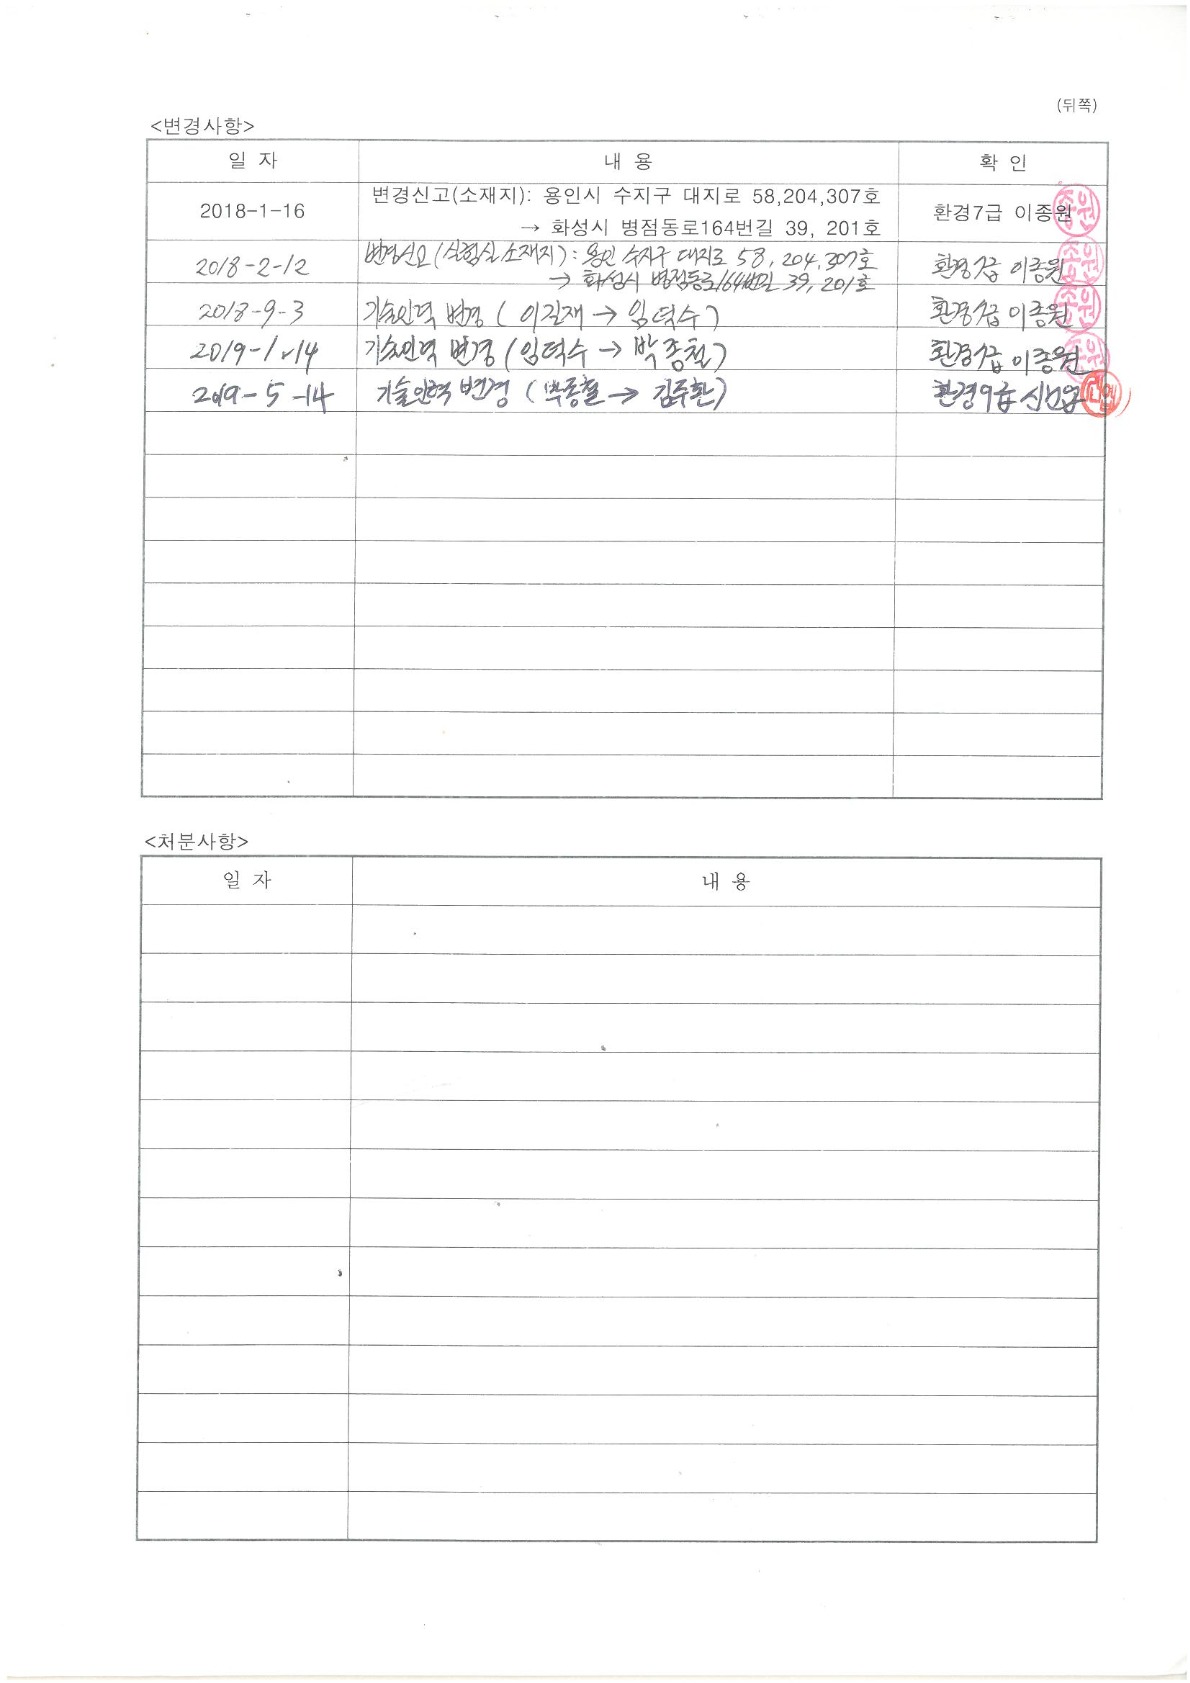 (뒤쪽)
<변경사항>
일 자 내 용 확 인
2018-1-16 변경신고(소재지): 용인시 수지구 대지로 58,204,307호 환경7급 이종원
→ 화성시 병점동로164번길 39, 201호
2018-2-12 변경신고(실험실 소재지): 용인 수지구 대지로 58, 204, 307호 환경7급 이종원
→ 화성시 병점동로164번길 39, 201호
2018-9-3 기술인력 변경 (이길재 → 임덕수) 환경7급 이종원
2019-1-14 기술인력 변경 (임덕수 → 박종철) 환경7급 이종원
2019-5-14 기술인력 변경 (박종철 → 김주환) 환경9급
<처분사항>
일 자 내 용